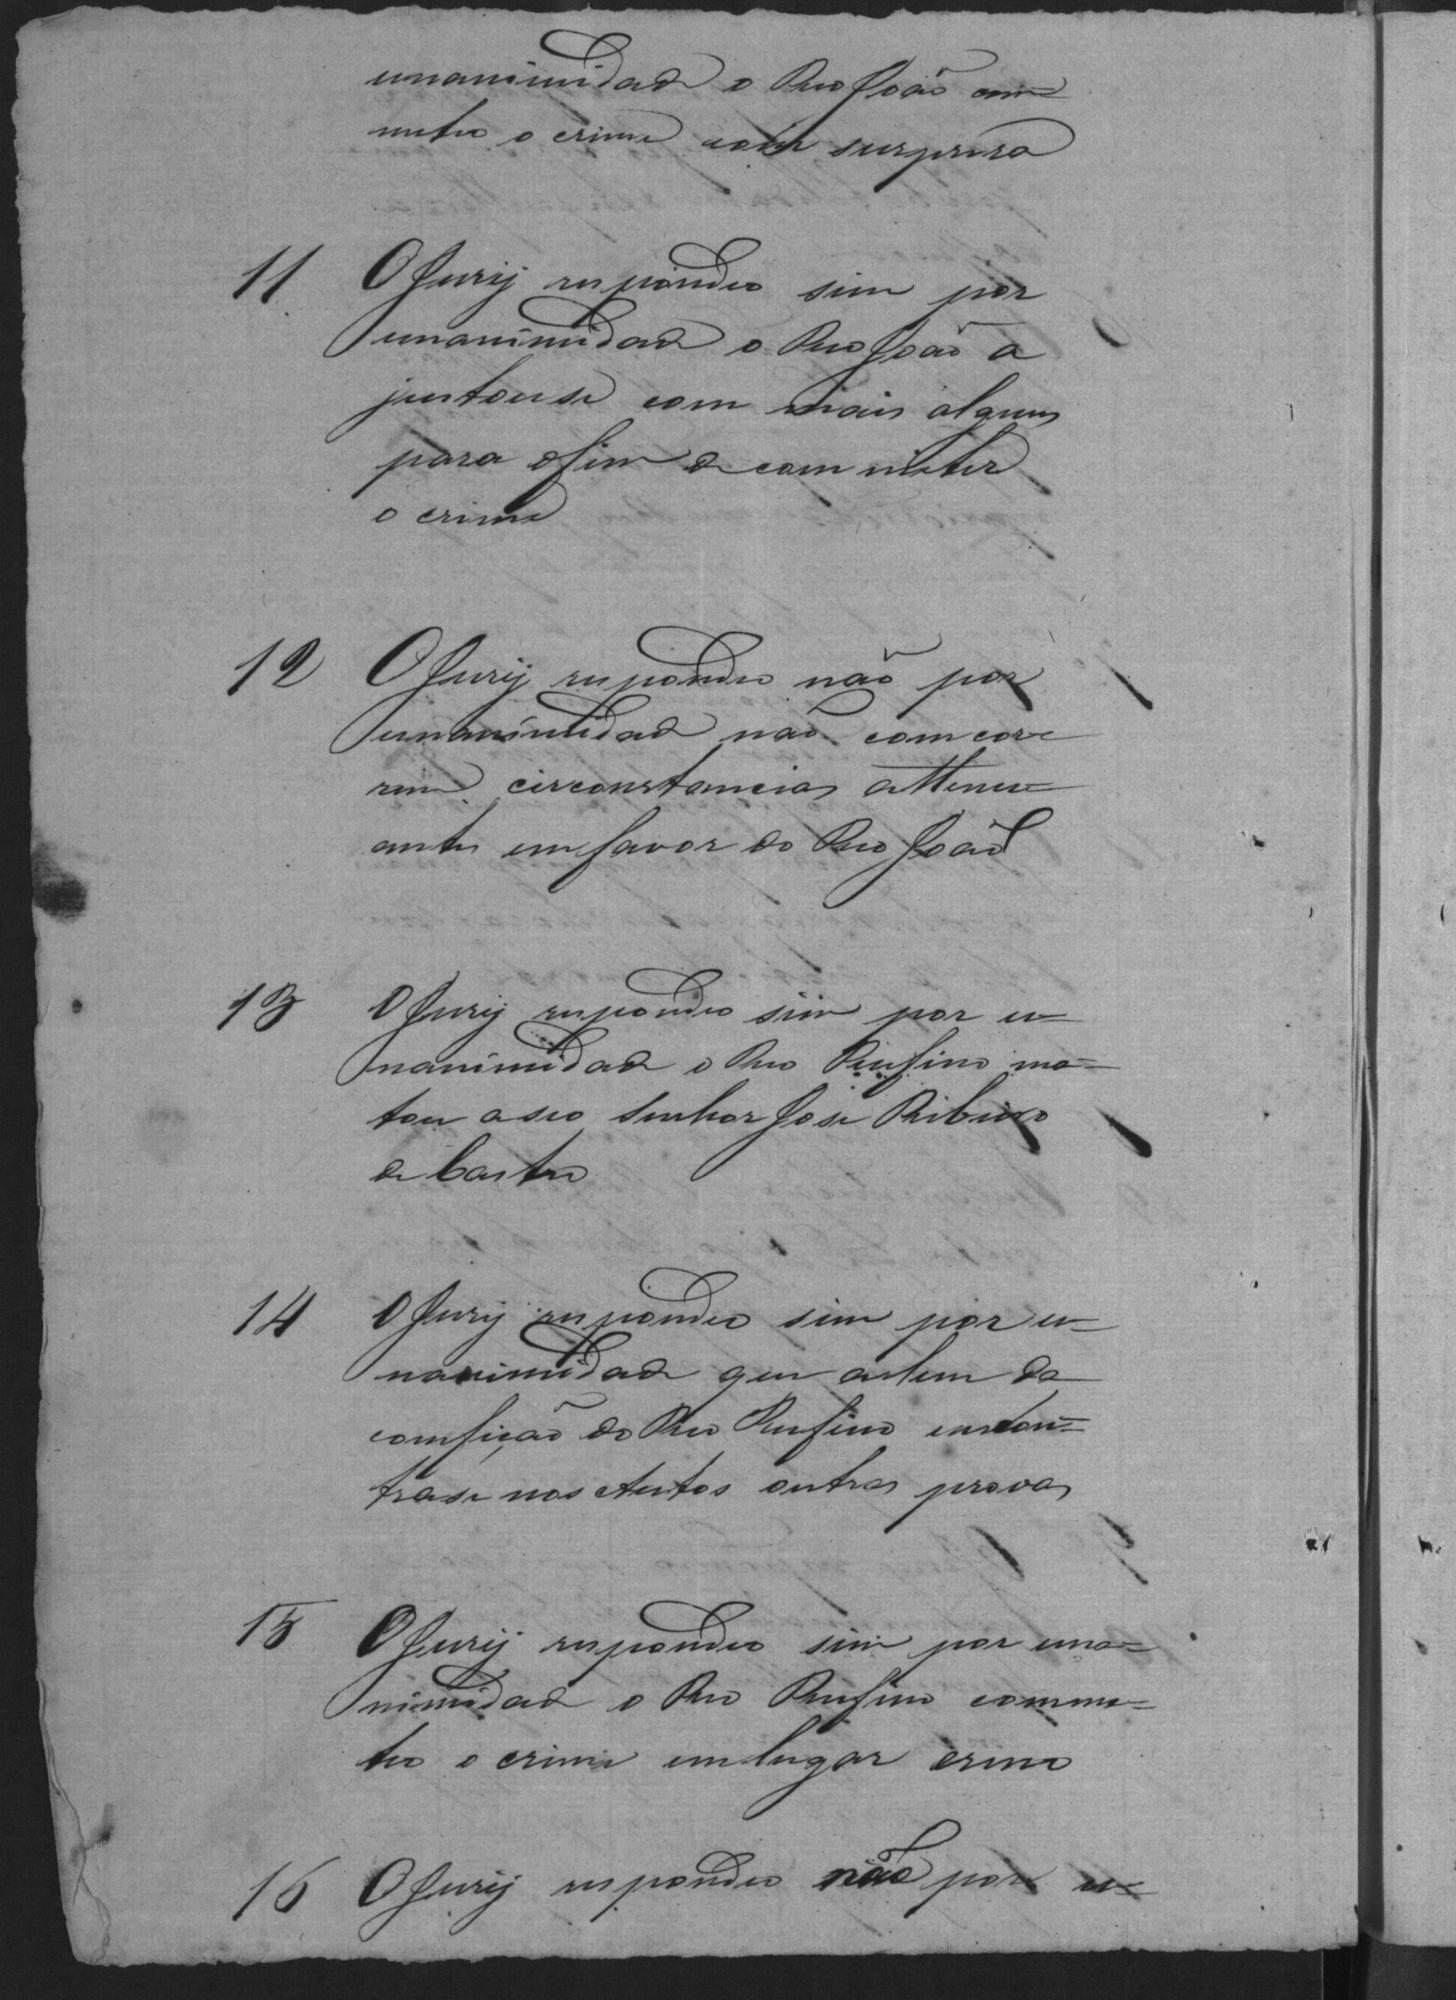 unanimidade o Reo João com=
meteo o crime com surpresa
11 O Jury respondeo sim por
unanimidade o Reo João a
justouse com mais alguns
para ofim de com meter
o crime
12 O Jury respondeo não por
unanimidade não comcor=
rem circonstancias attenu=
antes em favor do Reo João
13 O Jury respondeo sim por u=
nanimidade o Reo Rufino ma=
tou a seo senhor José Ribeiro
de Castro
14 O Jury respondeo sim por u=
nanimidade que alem da
comfição do Reo Rufino encon=
trase nos Autos outras provas
15 O Jury respondeo sim por una=
nimidade o Reo Rufino comme=
teo o crime em lugar ermo
16 O Jury respondeo não por u=